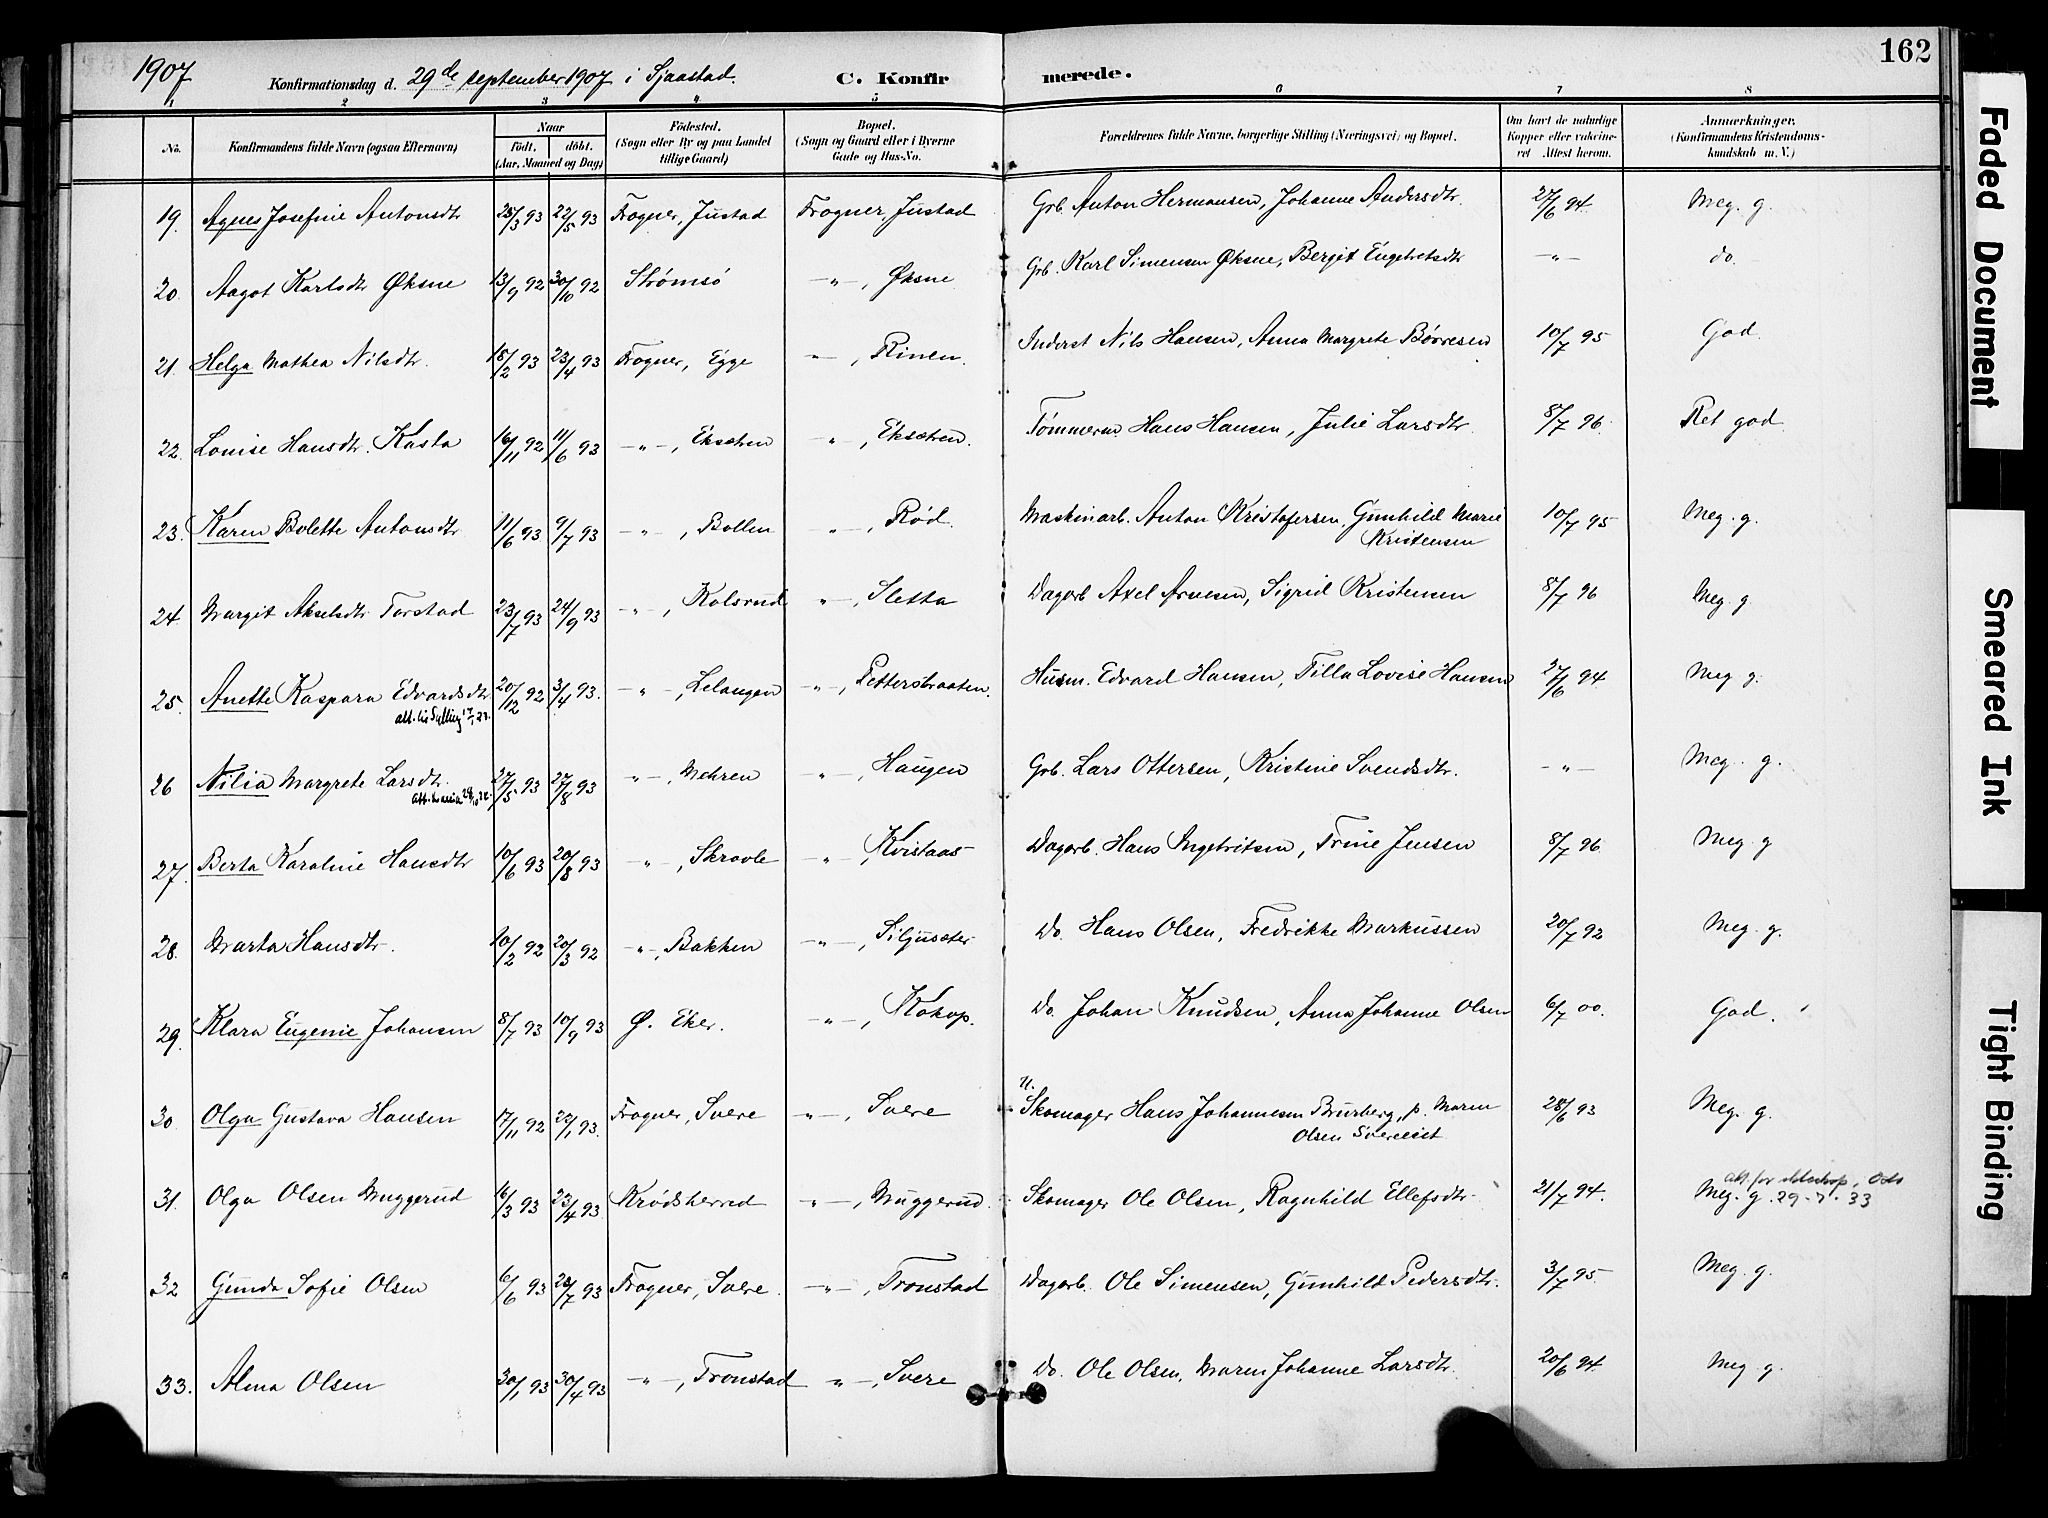 162
1907
Konfirmationsdag d. 29de september 1907 i Sjaastad. C. Konfirmerede.
1 2 3 4 5 6 7 8
No. Konfirmandens fulde Navn (ogsaa Efternavn) Naar født, døbt. (Aar, Maaned og Dag) Fødested. (Sogn eller By og paa Landet tillige Gaard) Bopæl. (Sogn og Gaard eller i Byerne Gade og Hus-No. Forældrenes fulde Navne, borgerlige Stilling (Næringsvei) og Bopæl. Om havt de naturlige Kopper eller vaccineret Attest herom. Anmærkninger. (Konfirmandens Kristendomskundskab m. V.)
19. Agnes Josefine Antonsdtr 25/3 93 22/5 93 Frogner, Justad Frogner, Justad Grb. Anton Hermansen, Johanne Andersdtr. 27/6 94. Meg. g.
20. Aagot Karlsdtr Øksne 13/9 92 30/10 92 Strømsø -"-, Øksne Grb. Karl Simensen Øksne, Bergit Engebretsdtr -"- do.
21. Helga Mathea Nilsdtr. 18/2 93 23/4 93 Frogner, Egge -"-, Rinen. Inderst Nils Hansen, Anna Margrete Børresen 10/7 95 God.
22. Louise Hansdtr. Kasla 16/11 92 11/6 93 -"-, Eksæten -"-, Eksæten. Tømmerm. Hans Hansen, Julie Larsdtr. 8/7 96. Ret god.
23. Karen Bolette Antonsdtr 11/6 93 9/7 93 -"-, Bollen -"-, Rød. Maskinarb. Anton Kristofersen, Gunhild Marie Kristensen 10/7 95 Meg. g.
24. Margit Akselsdtr Torstad 23/7 93 24/9 93 -"-, Kolsrud -"-, Sletta Dagarb Axel Arnesen, Sigrid Kristensen 8/7 96 Meg. g.
25. Anette Kaspara Edvardsdtr 20/12 92 3/4 93. -"-, Lelangen -"-, Petterstraaten. Husm. Edvard Hansen, Tilla Lovise Hansen 27/6 94. Meg g.
26 Nilia Margrete Larsdtr. 27/5 93 27/8 93 -"-, Mehren -"-, Haugen Grb. Lars Ottersen, Kristine Svendsdtr. -"- Meg. g.
27. Berta Karoline Hansdtr 10/6 93 20/8 93 -"-, Skravle -"-, Kvistaas Dagarb. Hans Ingebritsen, Trine Jensen 8/7 96. Meg. g
28. Marta Hansdtr. 10/2 92 20/3 92 -"-, Bakken -"-, Siljusæter Do. Hans Olsen, Fredrikke Markussen 20/7 92 Meg. g.
29. Klara Eugenie Johansen 8/7 93 10/9 93 Ø. Eker. -"-, Kokop. Do. Johan Knudsen, Anna Johanne Olsen 6/7 00. God.
30 Olga Gustava Hansen 17/11 92 22/1 93. Frogner, Svere -"-, Svere Skomager Hans Johannesen Burberg, p. Maren Olsen Svereeiet 28/6 93 Meg. g.
31. Olga Olsen Muggerud 16/3 93 23/4 93. Krødsherred -"-, Muggerud. Skomager Ole Olsen, Ragnhild Ellefsdtr. 21/7 94. Meg. g. 29-7-33
32 Gunda Sofie Olsen 6/6 93 28/7 93 Frogner, Svere. -"-, Tronstad Dagarb. Ole Simensen, Gunhild Pedersdtr. 3/7 95. Meg. g.
33. Alma Olsen 30/1 93 30/4 93 -"-, Tronstad -"-, Svere Do. Ole Olsen, Maren Johanne Larsdtr. 20/6 94. Meg. g.
Faded Document
Smeared Ink
Tight Binding